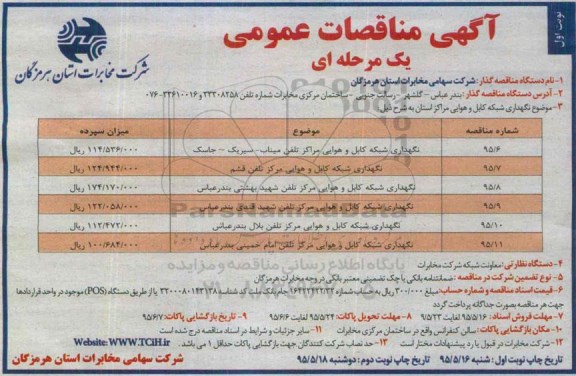 نوبت اول
آگهی مناقصات عمومی
یک مرحله ای
شرکت مخابرات استان هرمزگان
۱- نام دستگاه مناقصه گذار: شرکت سهامی مخابرات استان هرمزگان
۲- آدرس دستگاه مناقصه گذار: بندرعباس - گلشهر - رسالت جنوبی - ساختمان مرکزی مخابرات شماره تلفن ۳۳۳۰۸۲۵۸ و ۳۳۶۱۰۰۱۶-۰۷۶
۳- موضوع نگهداری شبکه کابل و هوایی مراکز استان به شرح ذیل:
شماره مناقصه موضوع میزان سپرده
۹۵/۶ نگهداری شبکه کابل و هوایی مراکز تلفن میناب- سیریک - جاسک ۱۱۴/۵۳۶/۰۰۰ ریال
۹۵/۷ نگهداری شبکه کابل و هوایی مرکز تلفن قشم ۱۲۴/۹۴۴/۰۰۰ ریال
۹۵/۸ نگهداری شبکه کابل و هوایی مرکز تلفن شهید بهشتی بندرعباس ۱۷۴/۱۷۰/۰۰۰ ریال
۹۵/۹ نگهداری شبکه کابل و هوایی مرکز تلفن شهید قندی بندرعباس ۱۲۲/۰۵۸/۰۰۰ ریال
۹۵/۱۰ نگهداری شبکه کابل و هوایی مرکز تلفن بلال بندرعباس ۱۱۲/۴۷۲/۰۰۰ ریال
۹۵/۱۱ نگهداری شبکه کابل و هوایی مرکز تلفن امام خمینی بندرعباس ۱۰۰/۶۸۴/۰۰۰ ریال
ParsNamadData
پایگاه اطلاع رسانی مناقصه و مزایده
۴- دستگاه نظارتی: معاونت شبکه شرکت مخابرات
۵- نوع تضمین شرکت در مناقصه: ضمانتنامه بانکی یا چک تضمینی معتبر بانکی در وجه مخابرات هرمزگان
۶- قیمت اسناد مناقصه و شماره حساب: مبلغ ۳۰۰/۰۰۰ ریال به حساب شماره بانک ملت کد شناسه یا از طریق دستگاه (POS) موجود در واحد قراردادها
جهت هر مناقصه بصورت جداگانه پرداخت گردد
۷- مهلت فروش اسناد: ۹۵/۵/۱۶ لغایت ۹۵/۵/۲۳ ۸- مهلت تحویل پاکات: ۹۵/۵/۲۴ لغایت ۹۵/۶/۶ ۹- تاریخ بازگشایی پاکات: ۹۵/۶/۷
۱۰- مکان بازگشایی پاکات: سالن کنفرانس واقع در ساختمان مرکزی مخابرات ۱۱- سایر جزئیات و شرایط در اسناد مناقصه درج شده است
۱۲- شرکت مخابرات در قبول یا رد پیشنهادات مختار است ۱۳- حد نصاب شرکت کنندگان جهت بازگشایی پاکات حداقل ۱ می باشد. Website: WWW.TCiH.ir
تاریخ چاپ نوبت اول: شنبه ۹۵/۵/۱۶ تاریخ چاپ نوبت دوم: دوشنبه ۹۵/۵/۱۸ شرکت سهامی مخابرات استان هرمزگان